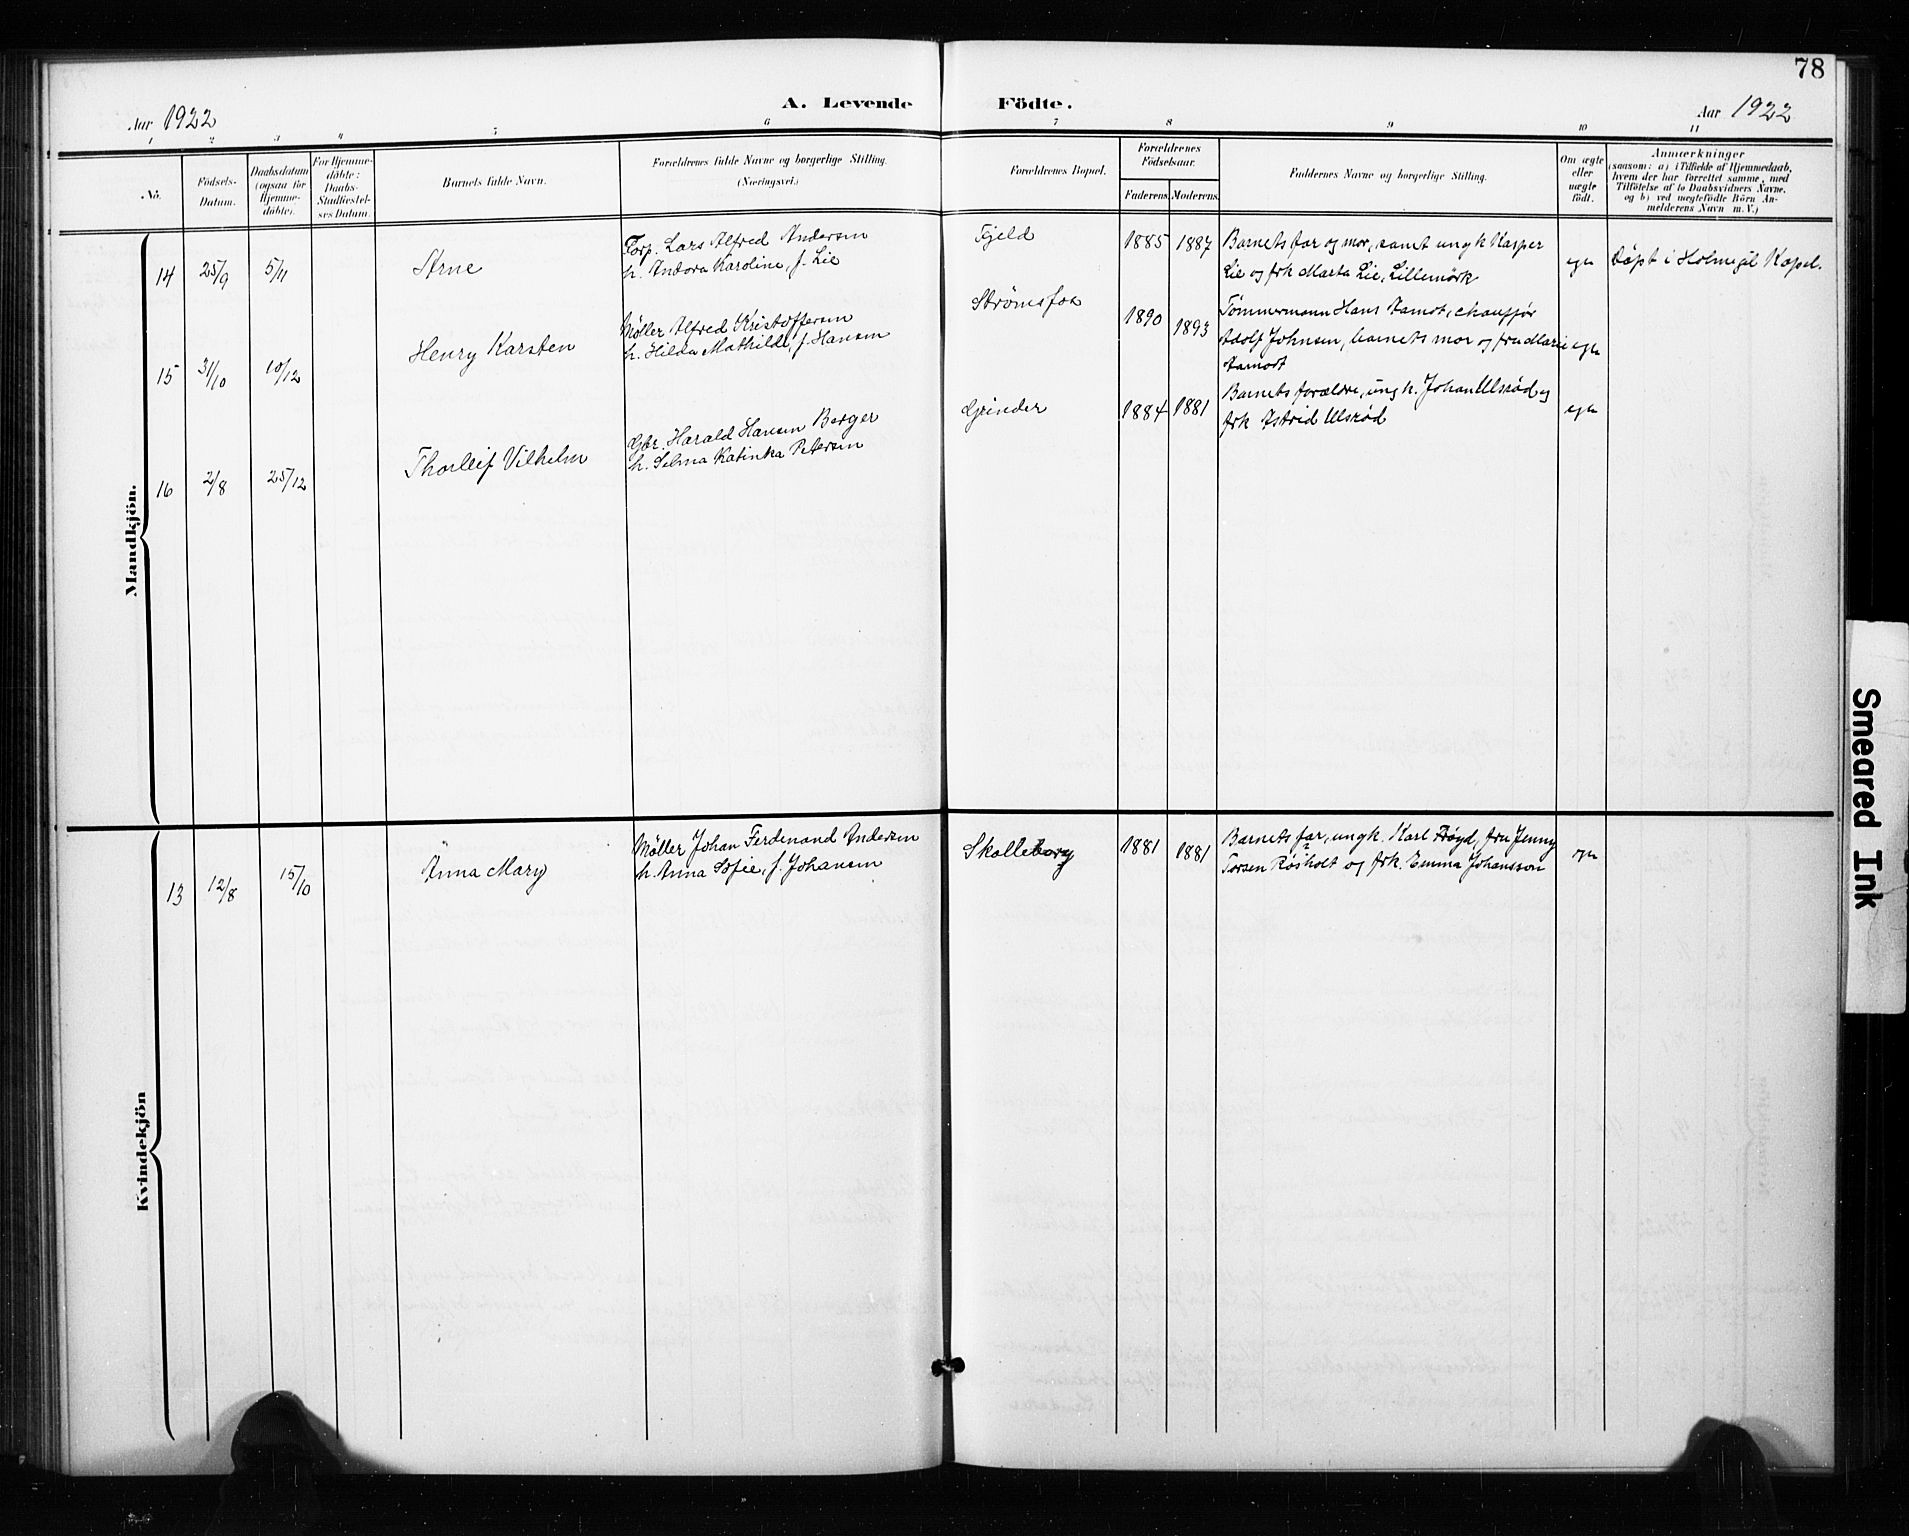 78
Aar 1922
A. Levende Födte.
Aar 1922
1 2 3 4 5 6 7 8 9 10 11
No.
Födsels-Datum.
Daabsdatum (ogsaa for Hjemme-döbte).
For Hjemme-döbte: Daabs-Stadfæstel-ses Datum.
Barnets fulde Navn.
Forældrenes fulde Navne og borgerlige Stilling.
(Næringsvei.)
Forældrenes Bopæl.
Forældrenes Födselsaar.
Faderens. Moderens.
Faddernes Navne og borgerlige Stilling.
Om ægte eller uægte födt.
Anmærkninger
(saasom: a) i Tilfælde af Hjemmedaab,
hvem der har forrettet samme, med
Tilföielse af to Daabsvidners Navne.
og b) ved uægtefödte Börn An-
melderens Navn m. V.)
Mandkjön.
14 25/9 5/11 Arne
Forp. Lars Alfred Andersen
h. Andora Karoline, f. Lie
Fjeld 1885 1887
Barnets far og mor, samt ungk Kasper
Lie og frk Marta Lie, Lillemörk
egte
Døpt i Holmegil Kapel.
15 31/10 10/12 Henry Karsten
Møller Alfred Kristoffersen
h. Hilda Mathilde, f. Hansen
Strømsfos 1890 1893
Tømmermann Hans Aamot, chauffør
Adolf Johnsen, barnets mor og fru Marie
Aamodt
egte
16 2/8 25/12 Thorleif Vilhelm
Gbr. Harald Hansen Berger
h. Selma Katinka Petersen
Grinder 1884 1881
Barnets forældre, ungk. Johan Ulsrød og
frk Astrid Ulsrød
egte
Kvindekjön
13 12/8 15/10 Anna Mary
Møller Johan Ferdenand Andersen
h. Anna Sofie, f. Johansen
Skolleborg 1881 1881
Barnets far, ungk. Karl Frøyd, fru Jenny
Torsen Røsholt og frk. Emma Johansson
egte
Smeared Ink